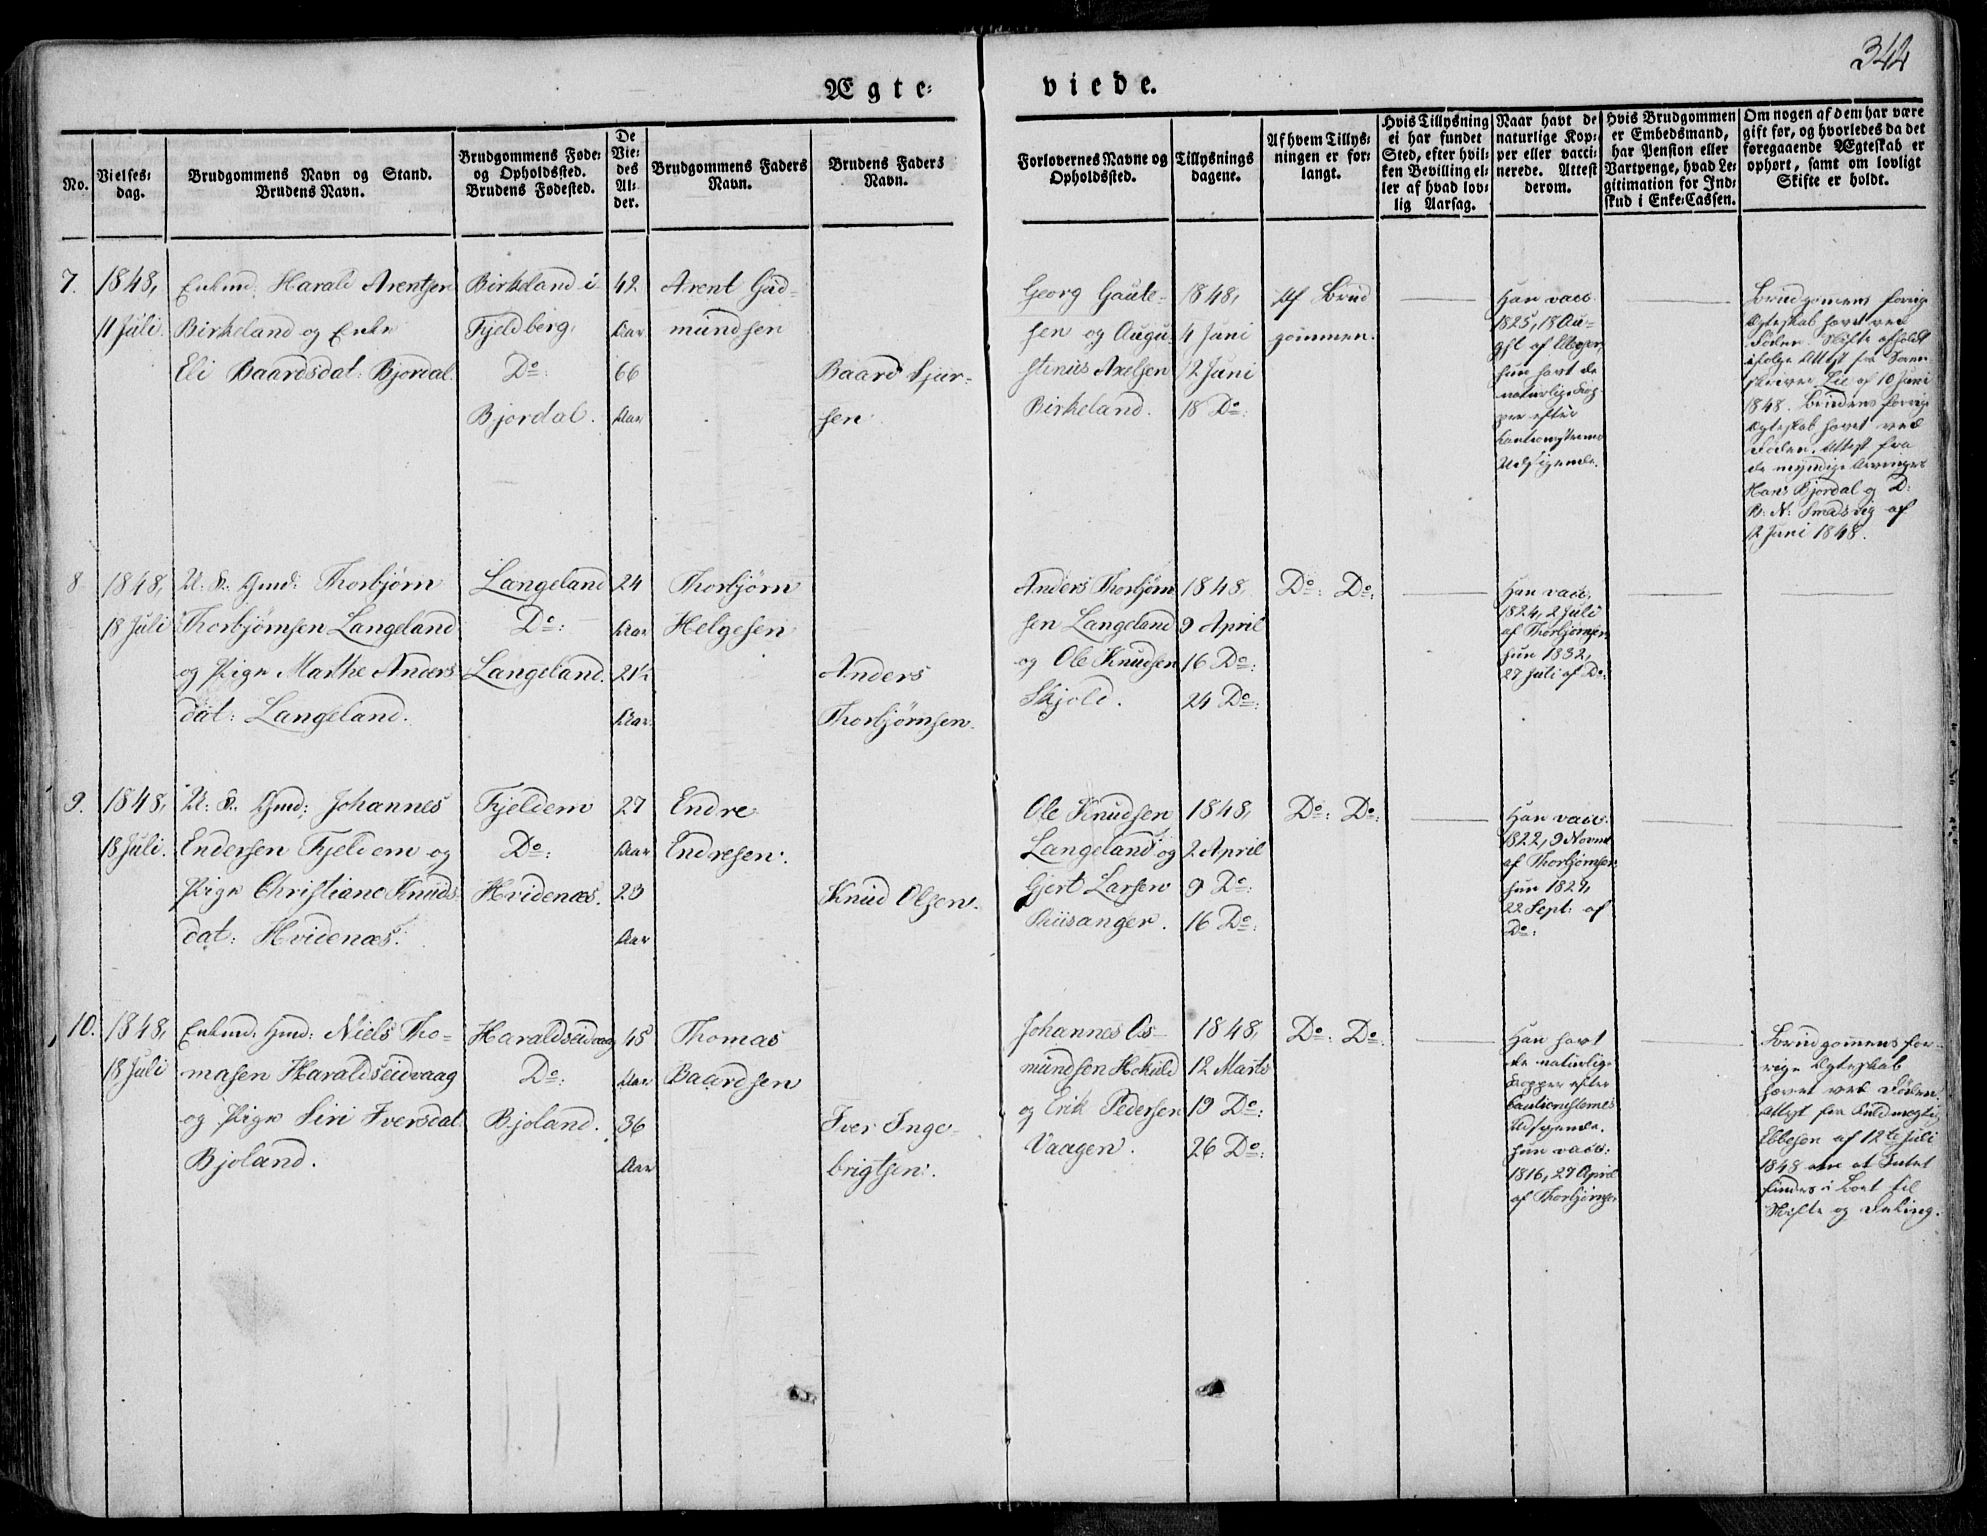 344
Ægte-
viede.
No.
Vielses-
dag.
Brudgommens Navn og Stand.
Brudens Navn.
Brudgommens Føde-
og Opholdssted.
Brudens Fødested.
De
Vie-
des
Al-
der.
Brudgommens Faders
Navn.
Brudens Faders
Navn.
Forlovernes Navne og
Opholdssted.
Tillysnings
dagene.
Af hvem Tillys-
ningen er for-
langt.
Hvis Tillysning
ei har fundet
Sted, efter hvil-
ken Bevilling el-
ler af hvad lov-
lig Aarsag.
Naar havt de
naturlige Kop-
per eller vacci-
nerede. Attest
derom.
Hvis Brudgommen
er Embedsmand,
har Pension eller
Vartpenge, hvad Le-
gitimation for Ind-
skud i Enke-Cassen.
Om nogen af dem har være
gift før, og hvorledes da det
foregaaende Ægteskab er
ophørt, samt om lovligt
Skifte er holdt.
7.
1848,
11 Juli.
Enkmd. Harald Arentsen
Birkeland og Enke
Eli Baardsdat: Bjordal.
Birkeland i
Fjeldberg,
Do:
Bjordal.
42
Aar
66
Aar
Arent Gud-
mundsen
Baard Sjur-
sen.
Georg Gaute-
sen og Augu
stinus Axelsen
Birkeland.
1848,
4 Juni
12 Juni
18 Do:
Af Brud
gommen.
Han vacc.
1825, 18 Au-
gst af
hun havt de
naturlige Kop
per efter
Cautionisternes
Udsigende.
Brudgomens forrige
Ægteskab hævet ved
Døden. Skifte afholdt
ifølge Attest fra Soren
skriver Lie af 10 Juni
1848. Brudens forrige
Ægteskab hævet ved
Døden. Attest fra
de myndige Arvinger
Hans Bjordal og D:
B: N: Smedsvig af
12 Juni 1848.
8
1848,
18 Juli
U: K: Gmd: Thorbjørn
Thorbjørnsen Langeland
og Pige Marthe Anders
dat: Langeland.
Langeland
Do:
Langeland.
24
Aar
21½
Aar
Thorbjørn
Helgesen
Anders
Thorbjørnsen.
Anders Thorbjørn
sen Langeland
og Ole Knudsen
Skjold.
1848,
9 April
16 Do:
24 Do:
Do: Do:
Han vacc.
1824, 2 Juli
af Thorbjørnsen
hun 1832,
27 Juli af Do:
9.
1848,
18 Juli.
U: K: Gmd: Johannes
Endersen Fjeldem og
Pige Christiane Knuds
dat: Hvidenæs.
Fjeldem
Do:
Hvidenæs.
27
Aar
23
Aar
Endre
Endresen.
Knud Olsen.
Ole Knudsen
Langeland og
Gjert Larsen
Riisanger.
1848,
2 April
9 Do:
16 Do:
Do: Do:
Han vacc.
1822, 9 Novmb
af Thorbjørnsen
hun 1829,
22 Sept: af
Do:
10.
1848,
18 Juli
Enkmd. Gmd: Niels Tho-
masen Haraldseidvaag
og Pige Siri Iversdat
Bjoland.
Haraldseidvaag
Do:
Bjoland.
45
Aar
36
Aar
Thomas
Baardsen
Iver Inge-
brigtsen.
Johannes As-
mundsen Hokuld
og Erik Pedersen
Vaagen.
1848,
12 Marts
19 Do:
26 Do:
Do: Do:
Han havt
de naturlige
Kopper efter
Cautionisternes
Udsigende.
hun vacc:
1816, 27 April
af Thorbjørnsen
Brudgomens for-
rige Ægteskab
hævet ved Døden
Attest fra Fuldmægtig
Ebbesen af 12te Juli
1848 om at Intet
findes i Boet til
Skifte og Deling.